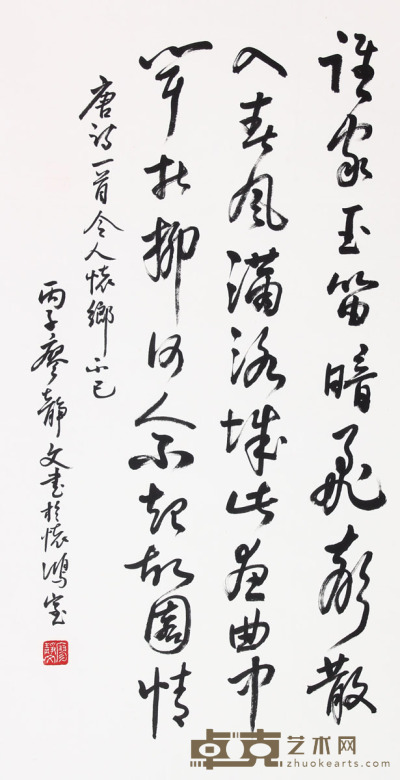 誰家玉笛暗飛聲散
入春風滿洛城此夜曲中
聞折柳何人不起故園情
唐詩一首令人懷鄉不已
丙子廖靜文書於懷鴻室
卓克艺术网
zhuokearts.com